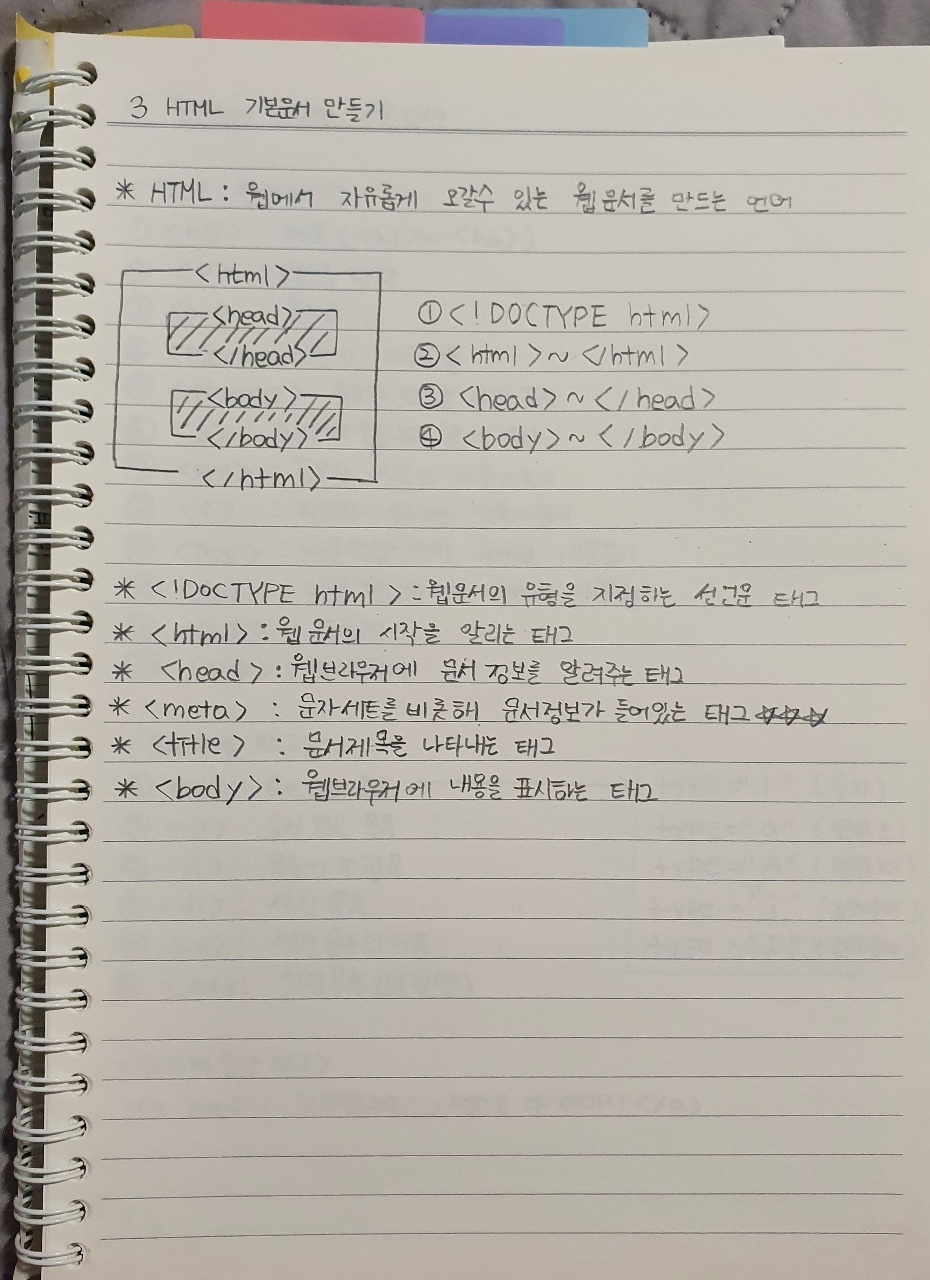 3 HTML 기본문서 만들기
* HTML : 웹에서 자유롭게 오갈수 있는 웹문서를 만드는 언어
<html>
<head>
</head>
<body>
</body>
</html>
① <!DOCTYPE html>
② <html>~</html>
③ <head>~</head>
④ <body>~</body>
* <!DOCTYPE html> : 웹문서의 유형을 지정하는 선언문 태그
* <html> : 웹 문서의 시작을 알리는 태그
* <head> : 웹브라우저에 문서 정보를 알려주는 태그
* <meta> : 문자세트를 비롯해 문서정보가 들어있는 태그 ☆☆☆
* <title> : 문서제목을 나타내는 태그
* <body> : 웹브라우저에 내용을 표시하는 태그